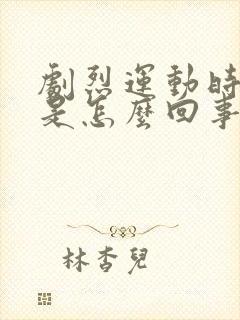 劇烈運動時
是怎麼回事
林杏兒